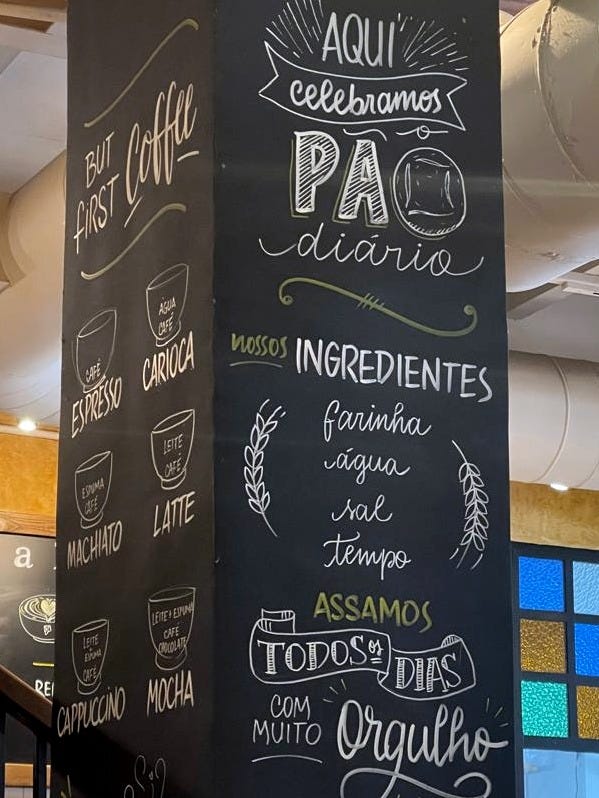 BUT
FIRST Coffee
CAFÉ
ESPRESSO
ÁGUA
CAFÉ
CARIOCA
ESPUMA
CAFÉ
MACHIATO
LEITE
CAFÉ
LATTE
LEITE
+
ESPUMA
CAFÉ
CAPPUCCINO
LEITE + ESPUMA
CAFÉ
CHOCOLATE
MOCHA
AQUI
celebramos
o
PÃO
diário
nossos INGREDIENTES
farinha
água
sal
tempo
ASSAMOS
TODOS os DIAS
COM
MUITO Orgulho
a